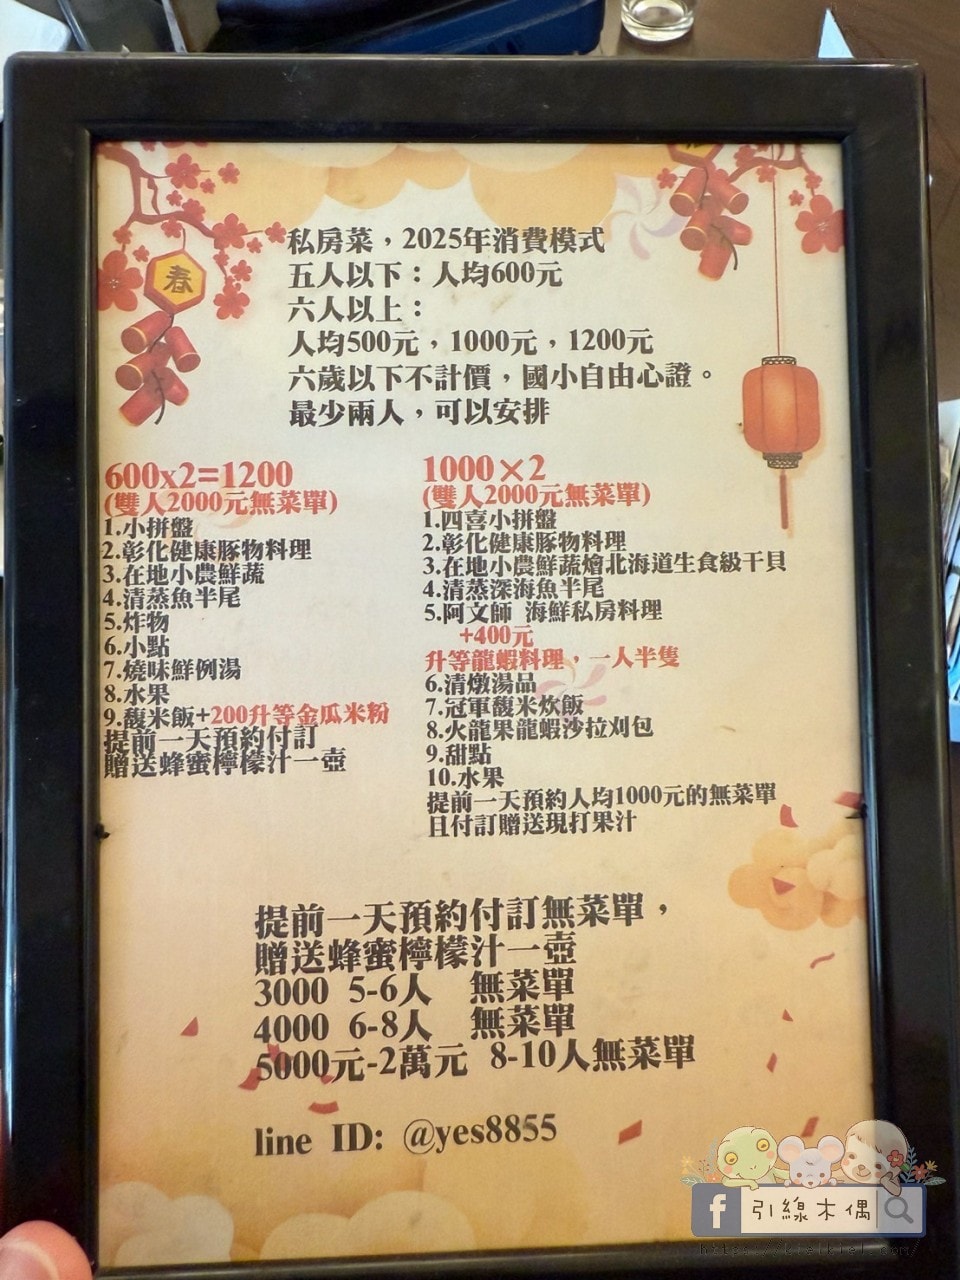 春
私房菜，2025年消費模式
五人以下：人均600元
六人以上：
人均500元，1000元，1200元
六歲以下不計價，國小自由心證。
最少兩人，可以安排
600x2=1200
(雙人2000元無菜單)
1.小拼盤
2.彰化健康豚物料理
3.在地小農鮮蔬
4.清蒸魚半尾
5.炸物
6.小點
7.燒味鮮例湯
8.水果
9.馥米飯+200升等金瓜米粉
提前一天預約付訂
贈送蜂蜜檸檬汁一壺
1000×2
(雙人2000元無菜單)
1.四喜小拼盤
2.彰化健康豚物料理
3.在地小農鮮蔬燴北海道生食級干貝
4.清蒸深海魚半尾
5.阿文師 海鮮私房料理
+400元
升等龍蝦料理，一人半隻
6.清燉湯品
7.冠軍馥米炊飯
8.火龍果龍蝦沙拉刈包
9.甜點
10.水果
提前一天預約人均1000元的無菜單
且付訂贈送現打果汁
提前一天預約付訂無菜單，
贈送蜂蜜檸檬汁一壺
3000 5-6人 無菜單
4000 6-8人 無菜單
5000元-2萬元 8-10人無菜單
line ID: @yes8855
f 引線木偶